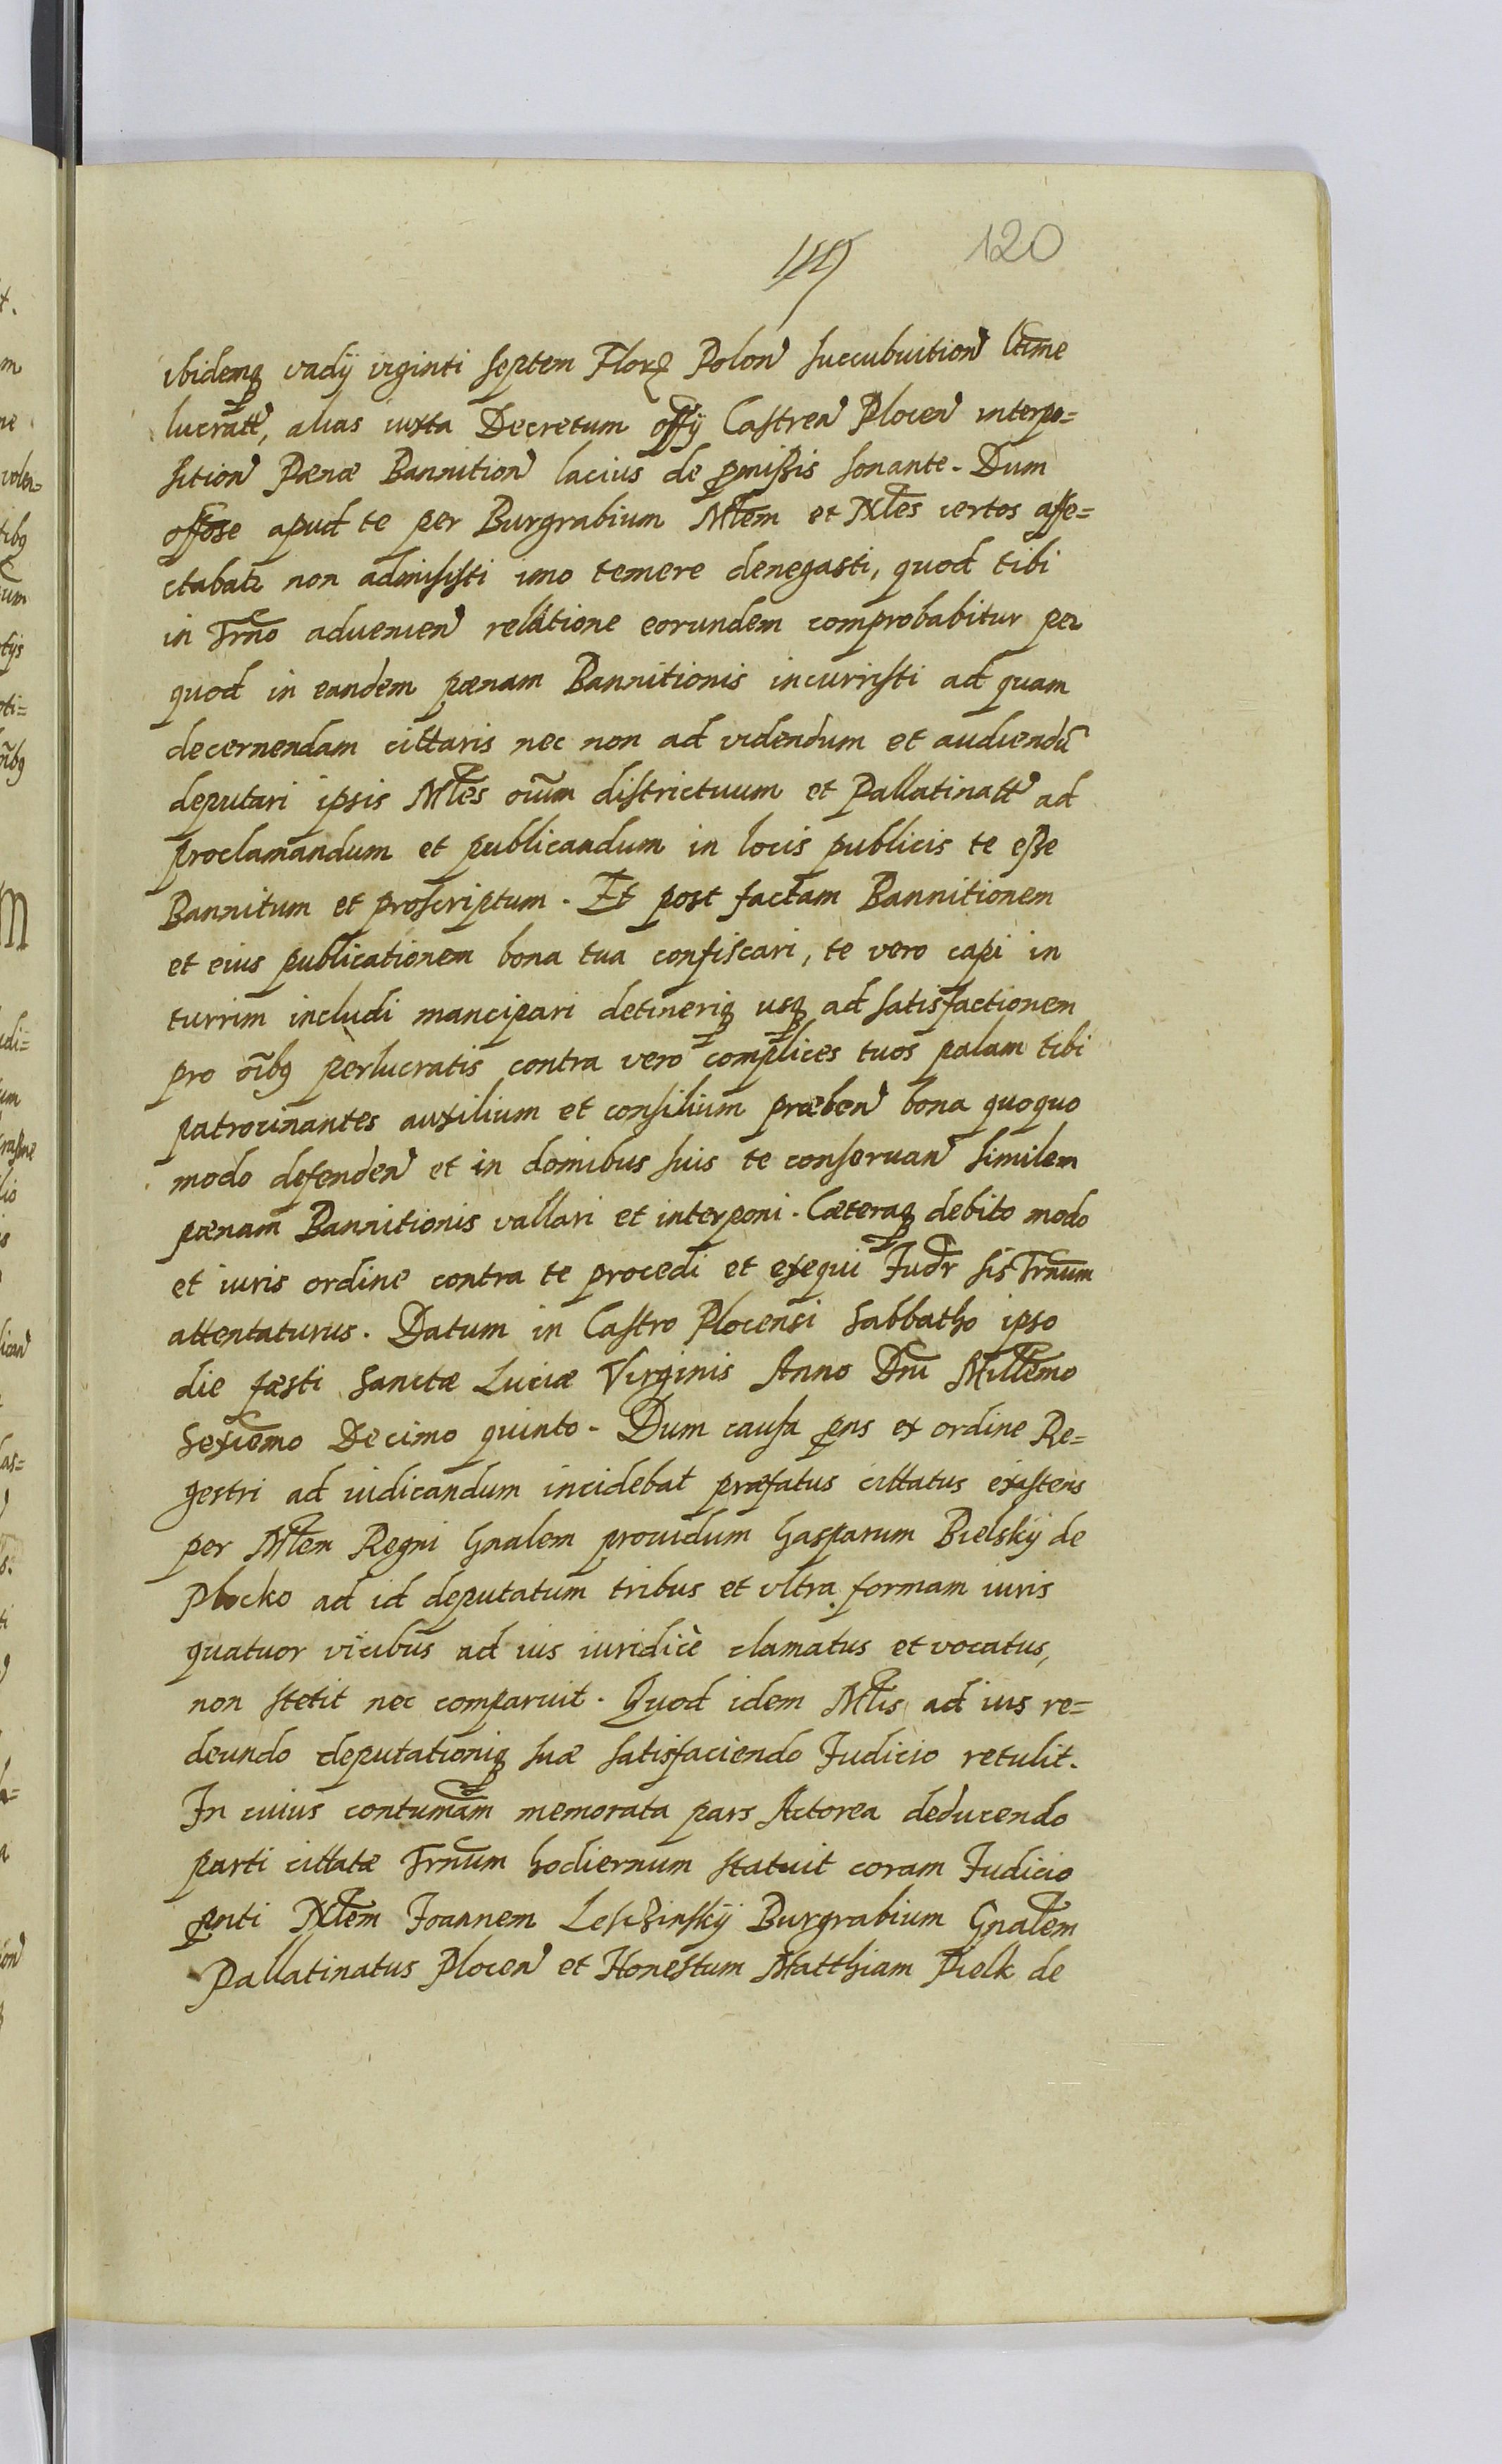 120
ibidemq₃ vadij viginti septem Flor. Polon succubuition ltime
lucratt, alias iuxta Decretum offij Castren Plocen interpo=
sition Pœnæ Bannition lacius de pmissis sonante. Dum
offose apud te per Burgrabium Mlem et Nles certos affe=
ctabatr non admisisti imo temere denegasti, quod tibi
in Trno advenien relatione eorundem comprobabitur per
quod in eandem pœnam Bannitionis incurristi ad quam
decernendam cittaris nec non ad videndum et audiendũ
deputari ipsis Mles oium districtuum et Pallatinatt ad
proclamandum et publicandum in locis publicis te esse
Bannitum et proscriptum. Et post factam Bannitionem
et eius publicationem bona tua confiscari, te vero capi in
turrim includi mancipari detineriq₃ usq₃ ad satisfactionem
pro oibq perlucratis contra vero complices tuos palam tibi
patrocinantes auxilium et consilium præben bona quoquo
modo defenden et in domibus suis te conservan similem
pœnam Bannitionis vallari et interponi. Cæteraq₃ debito modo
et iuris ordine contra te procedi et exequi Judr sis Trnum
attentaturus. Datum in Castro Plocensi Sabbatho ipso
die fæsti Sanctæ Luciæ Virginis Anno Dni Millemo
Sexcemo Decimo quinto. Dum causa pns ex ordine Re=
gestri ad iudicandum incidebat præfatus cittatus existens
per Mlem Regni Gnalem providum Gasparum Bielskij de
Plocko ad id deputatum tribus et ultra formam iuris
quatuor vicibus ad ius iuridicè clamatus et vocatus,
non stetit nec comparuit. Quod idem Mlis ad ius re=
deundo deputationiq₃ suæ satisfaciendo Judicio retulit.
In cuius contumam memorata pars Actorea deducendo
parti cittatæ Trnum hodiernum statuit coram Judicio
pnti Nlem Joannem Leschinskij Burgrabium Gnalem
Pallatinatus Plocen et Honestum Matthiam Pielk de